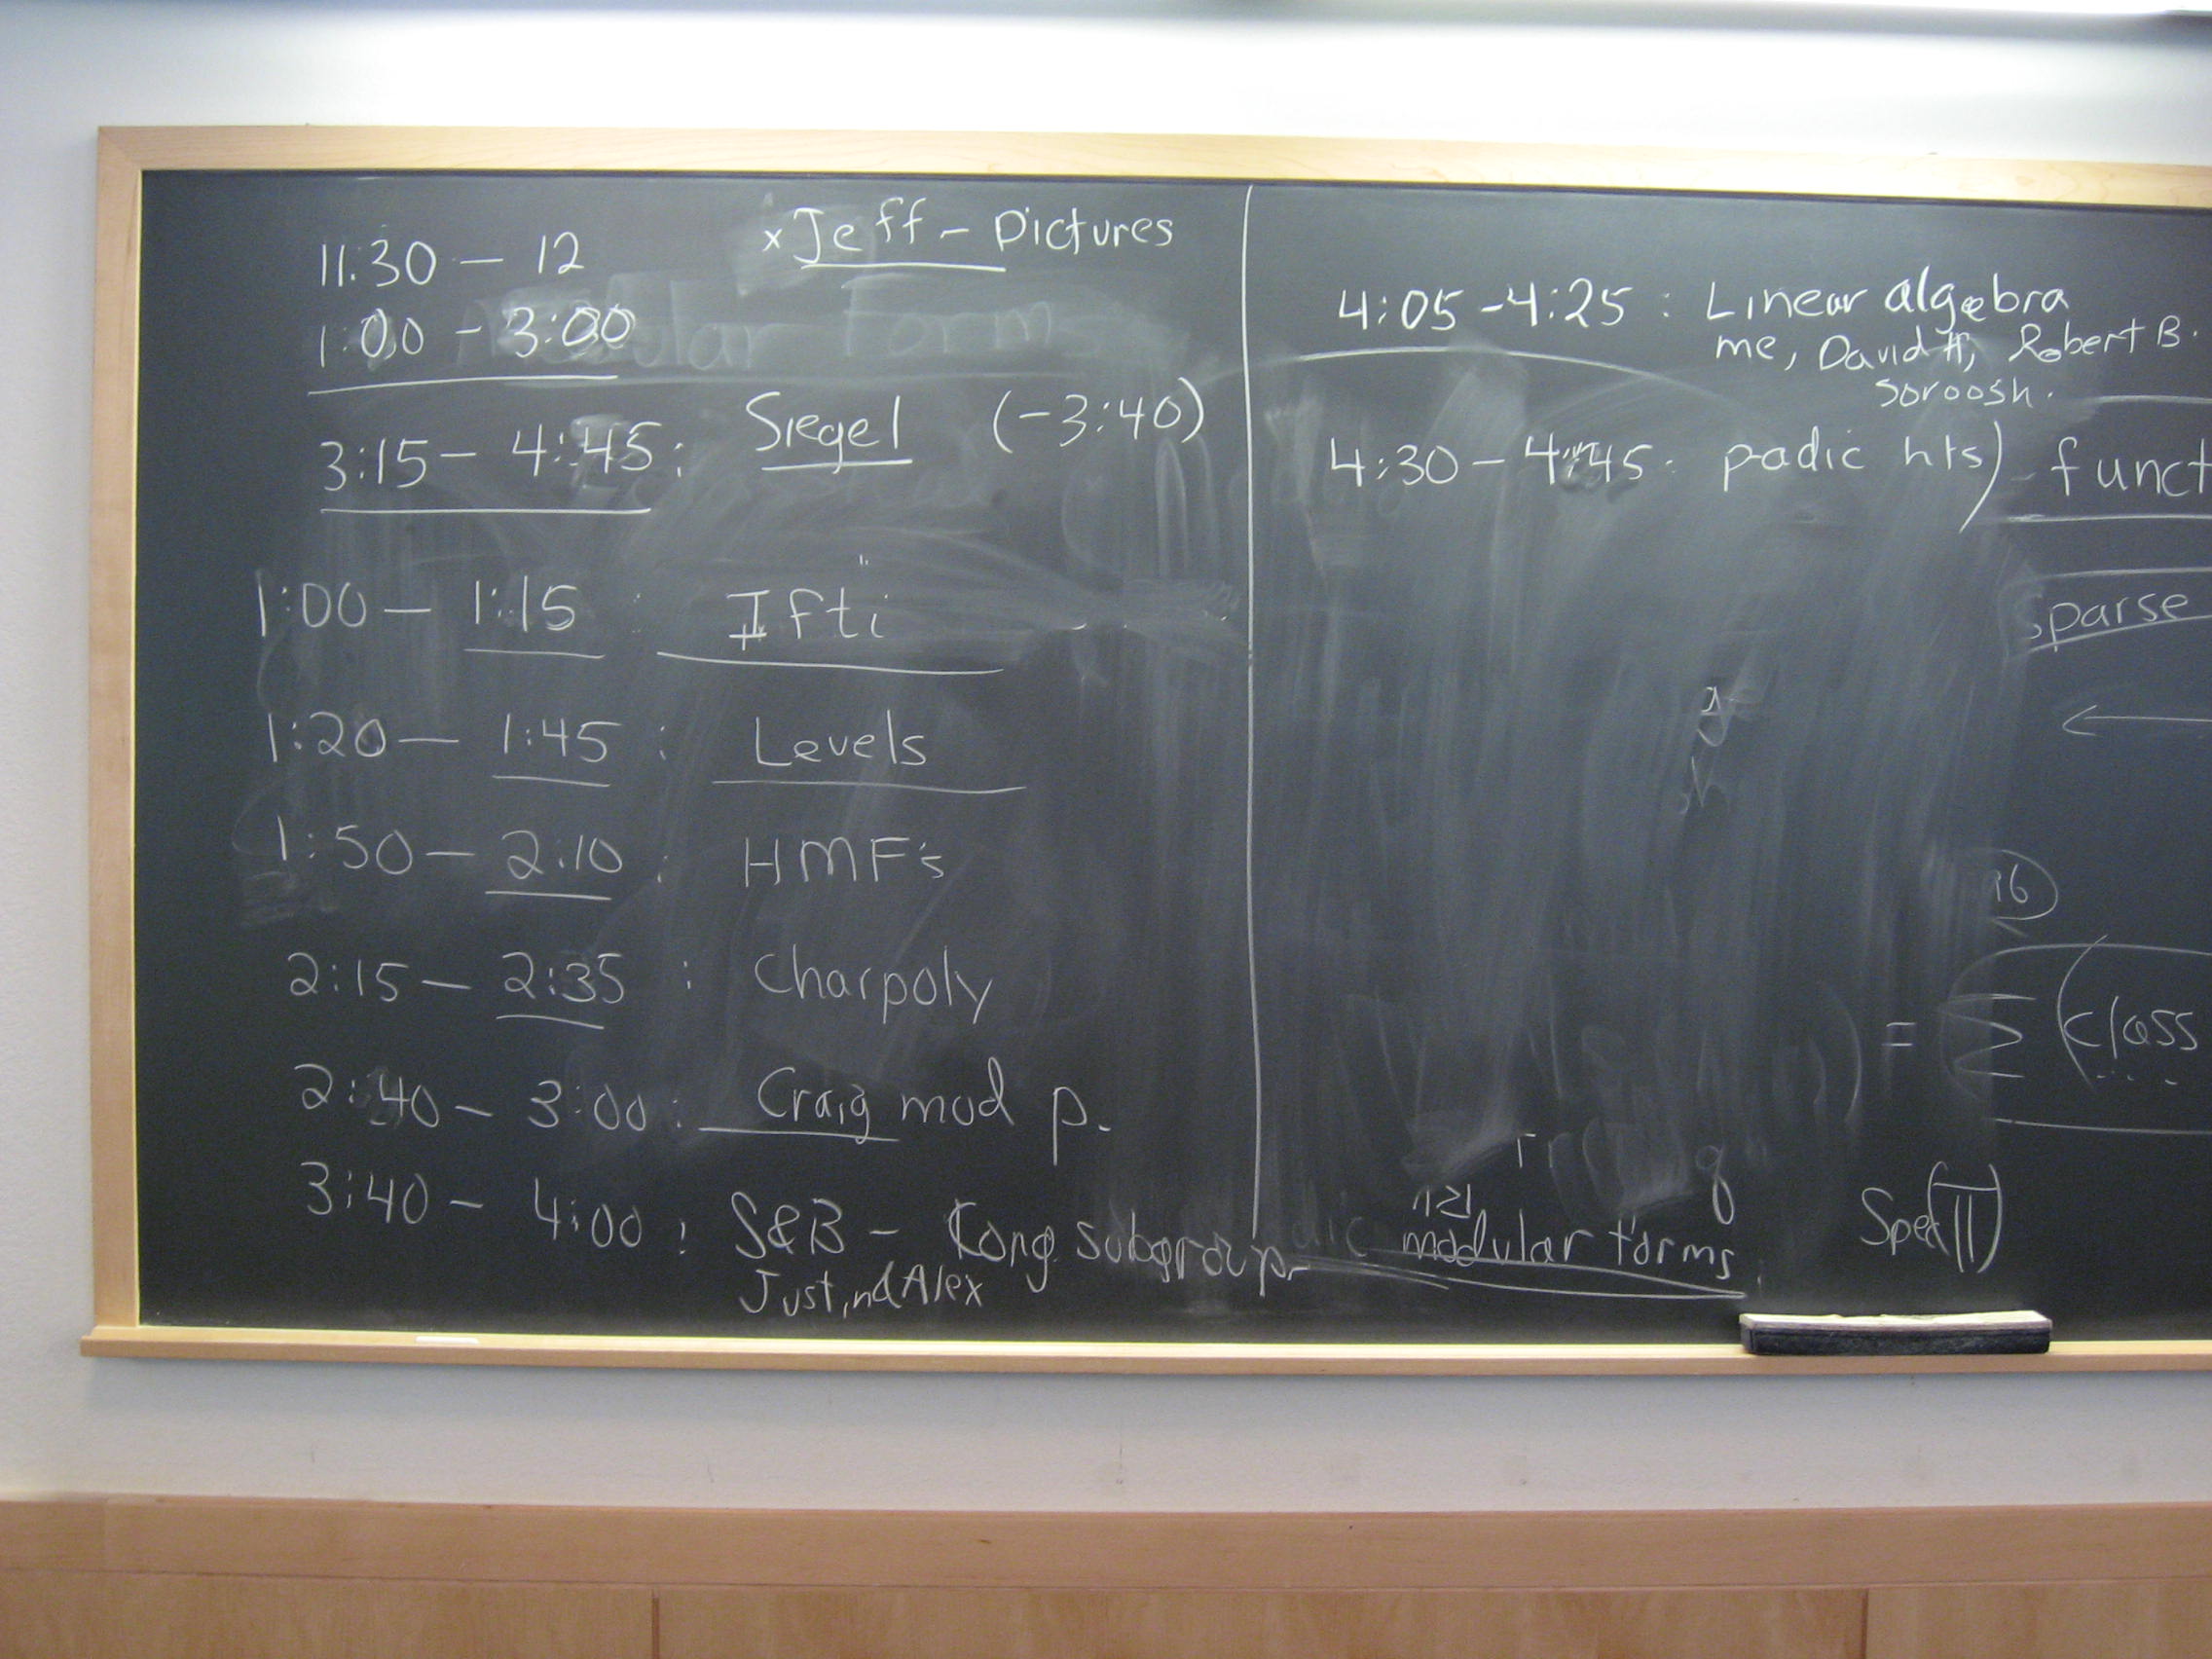 11:30 — 12 x Jeff - Pictures
1:00 - 3:00
3:15 - 4:45: Siegel (-3:40)
1:00 — 1:15 : Ifti
1:20 — 1:45 : Levels
1:50 — 2:10 : HMF's
2:15 — 2:35 : Charpoly
2:40 - 3:00: Craig mod p.
3:40 - 4:00: S&B - Cong subgroup
Justin & Alex
4:05 - 4:25 : Linear algebra
me, David H, Robert B.
Soroosh.
4:30 - 4:45: padic hts)
funct
sparse
= Σ (class
n≥1 q
modular forms
Spec(T)